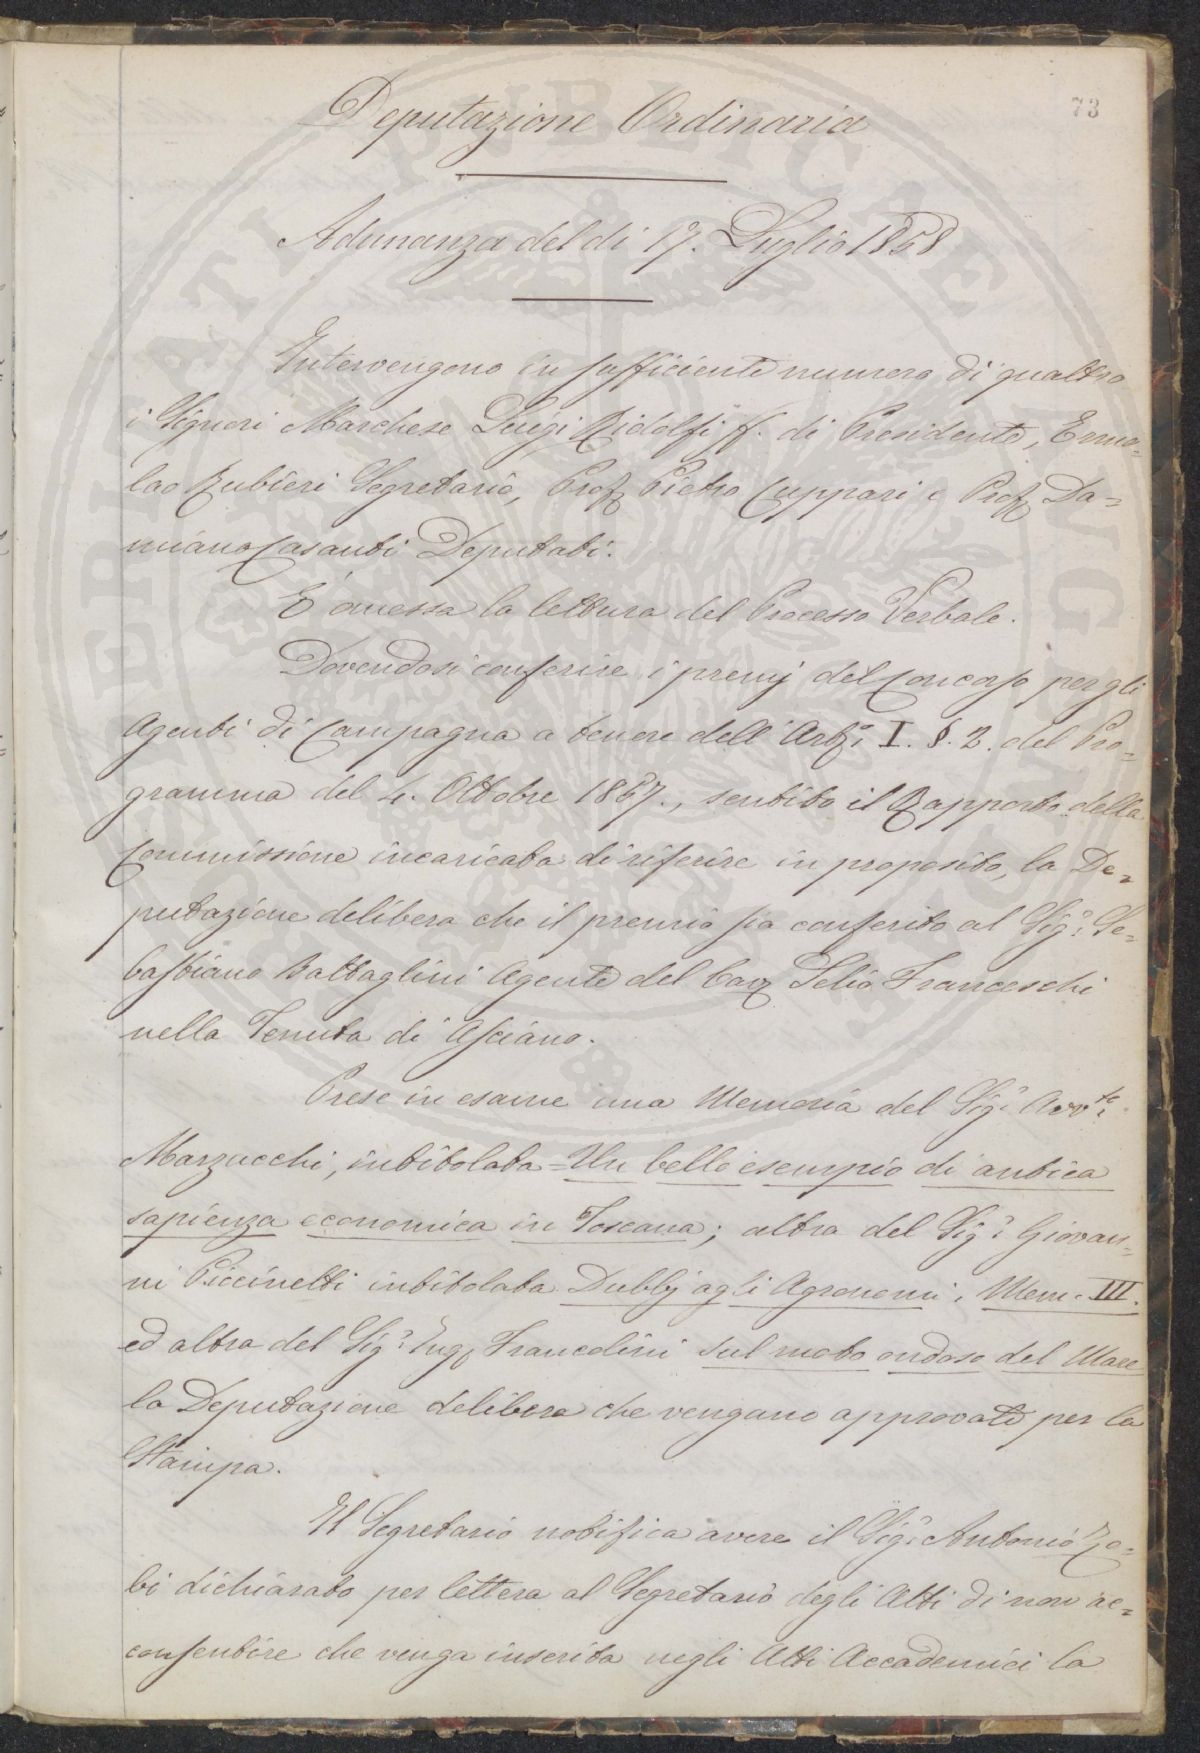 73
Deputazione Ordinaria
Adunanza del dì 17. Luglio 1868
Intervengono in sufficiente numero di quattro
i Signori Marchese Luigi Ridolfi ff. di Presidente, Ermo-
lao Rubieri Segretario, Prof. Pietro Cuppari e Prof. Da-
miano Casanti Deputati.
E' omessa la lettura del Processo Verbale.
Dovendosi conferire i premj del Concorso per gli
Agenti di Campagna a tenere dell' Art.º I. §. 2. del Pro-
gramma del 4. Ottobre 1867., sentito il Rapporto della
Commissione incaricata di riferire in proposito, la De-
putazione delibera che il premio sia conferito al Sig.r Se-
bastiano Battaglini Agente del Cav. Lelio Franceschi
nella Tenuta di Asciano.
Prese in esame una Memoria del Sig.r Avv.to
Marzucchi, intitolata = Un bello esempio di antica
sapienza economica in Toscana; altra del Sig.r Giovan-
ni Piccinetti intitolata Dubbj agli Agronomi, Mem. III.
ed altra del Sig.r Ing. Francolini sul moto ondoso del Mare
la Deputazione delibera che vengano approvate per la
Stampa.
Il Segretario notifica avere il Sig.r Antonio Zo-
bi dichiarato per lettera al Segretario degli Atti di non ac-
consentire che venga inserita negli Atti Accademici la